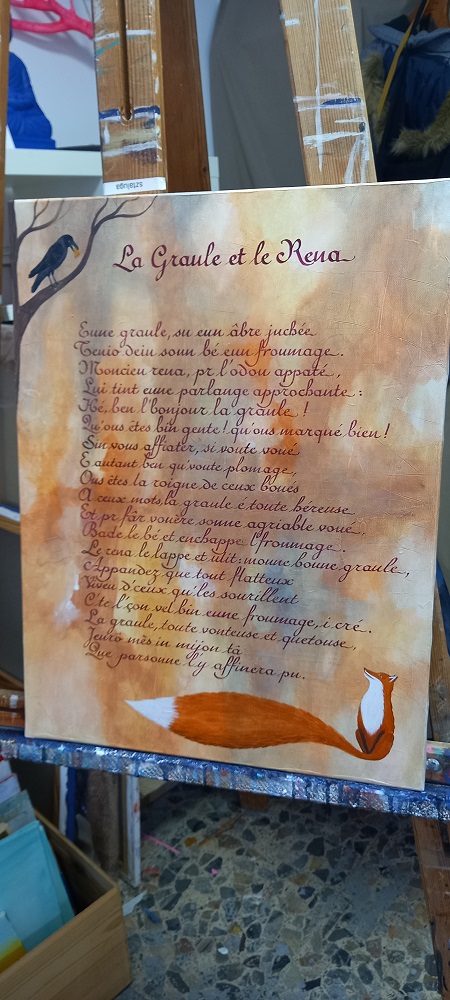 sztaluga
La Graule et le Rena
Eune graule, su eun âbre juchée
Tenio dein soun bé eun froumage.
Moncieu rena, pr l'odou appaté,
Lui tint eune parlange approchante :
Hé, ben l'bonjour la graule !
Qu'ous êtes bin gente ! qu'ous marqué bien !
Sin vous affiater, si voute voué
E autant ben qu'voute plomage,
Ous êtes la roigne de ceux boués
A ceux mots, la graule é toute héreuse
Et pr fâr vouère sonne agriable voué,
Bade le bé et enchappe l'froumage.
Le rena le lappe et idit : moune boune graule,
Appandez que tout flatteux
Viveu d'ceux qu'iles sourillent
C'te l'çon vel bin eune froumage, i cré.
La graule, toute vonteuse et quetouse,
Jeuro mês in mijon tâ
Que parsoune l'y affinera pu.